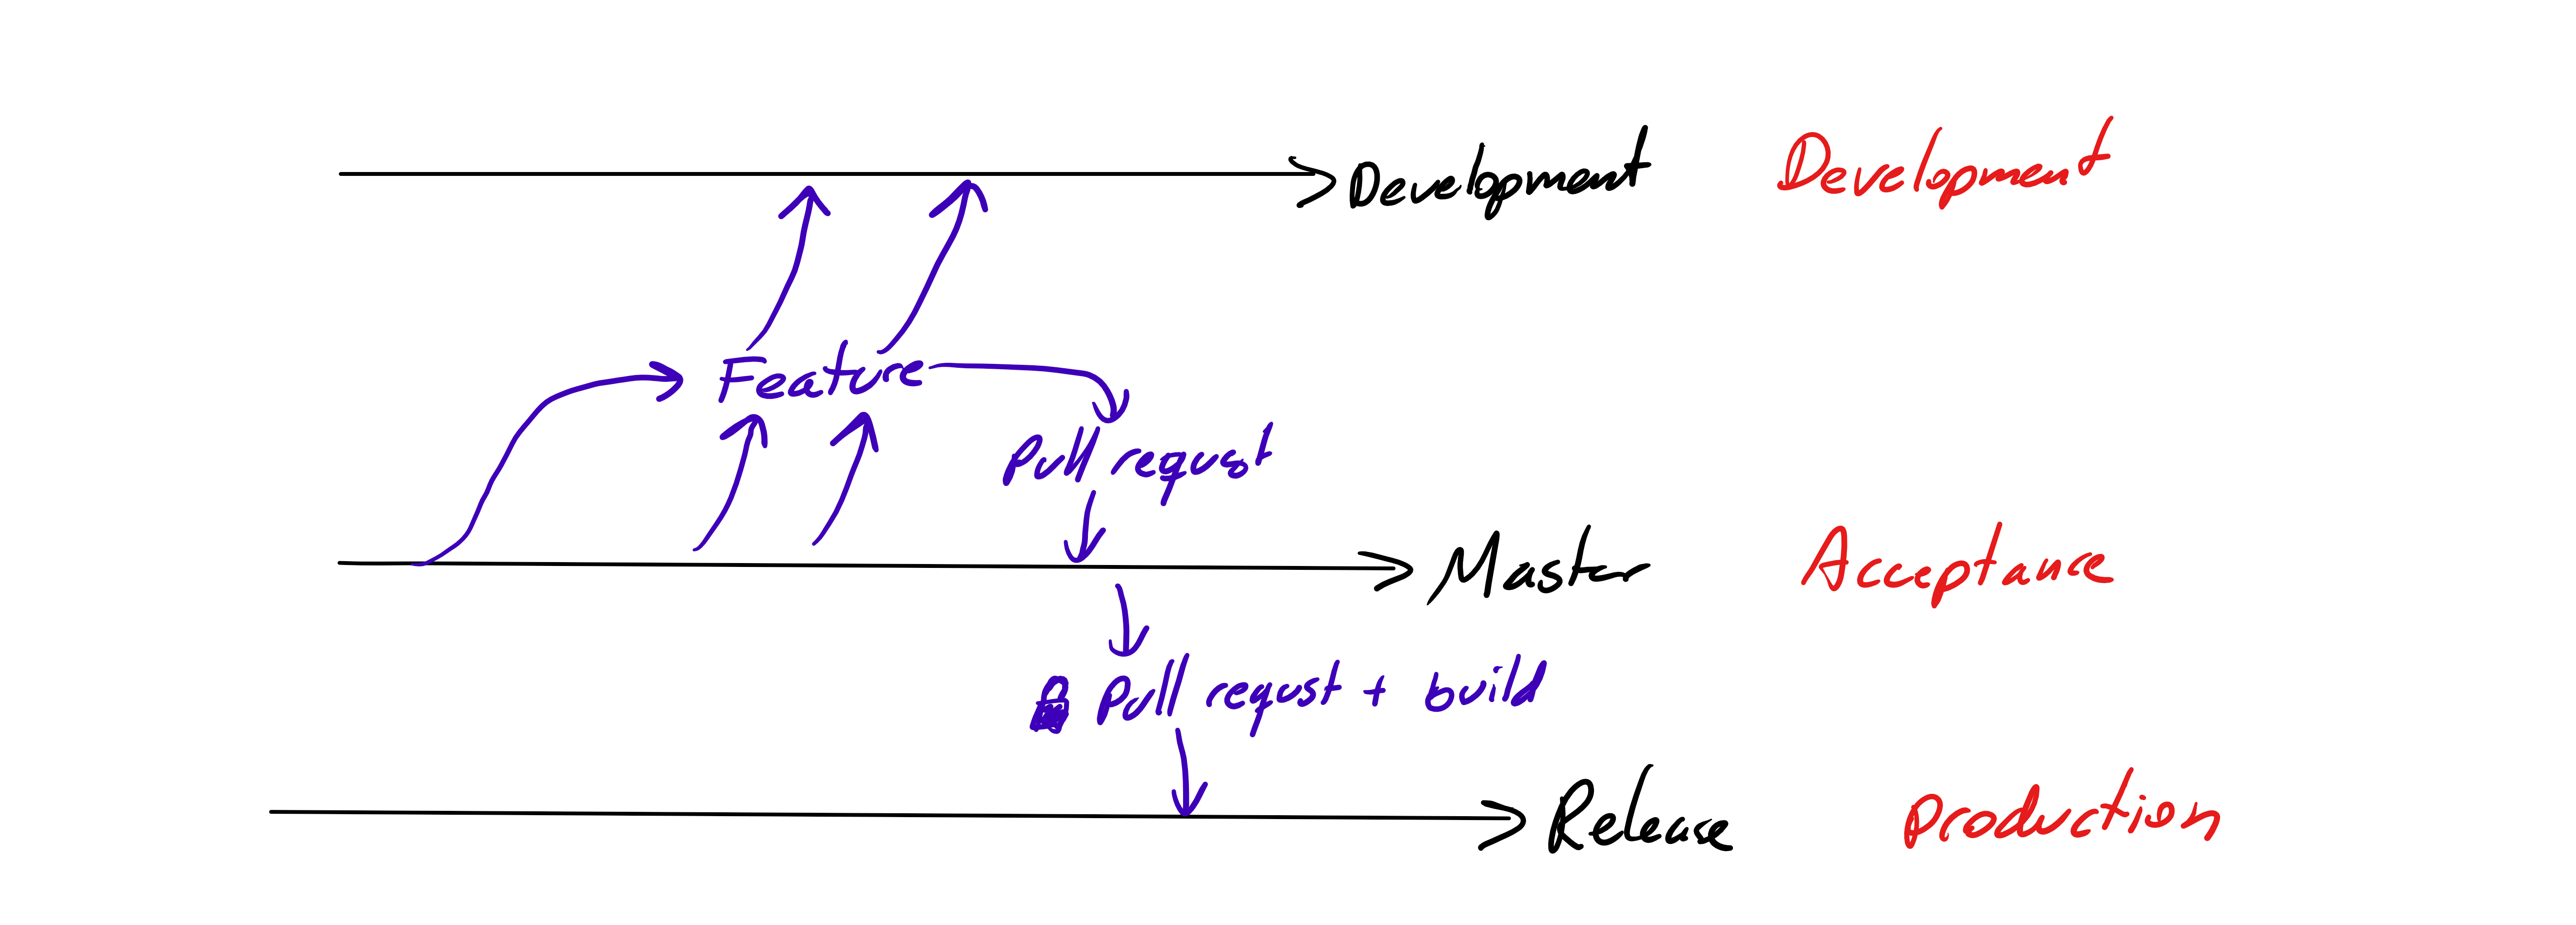 Development Development
Feature
Pull request
Master Acceptance
Pull requst + build
Release Production